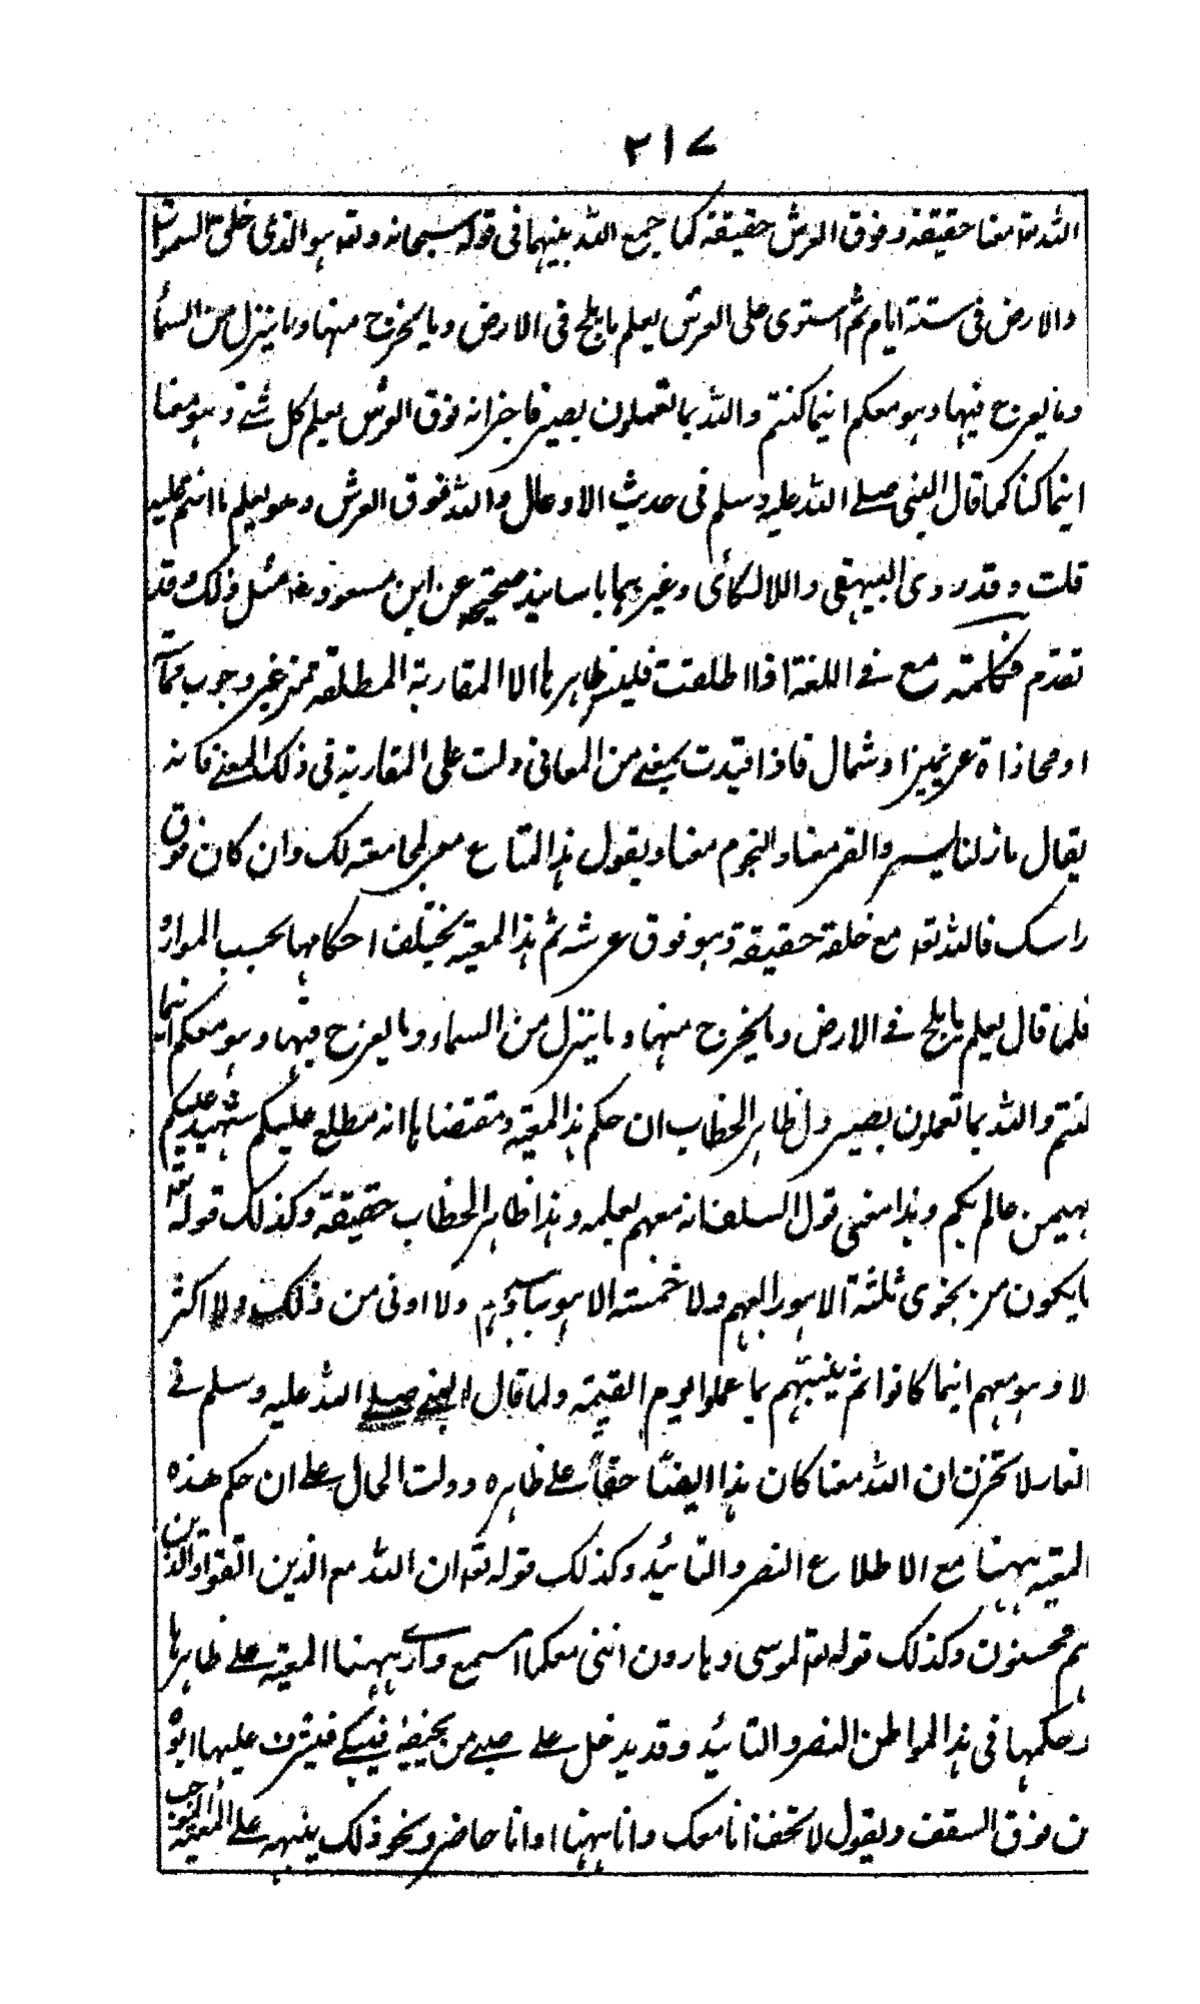 ٢١٧
الله تعا معنا حقيقة وفوق العرش حقيقة كما جمع الله بينهما فى قوله سبحانه وتعه هو الذى خلق السموات
والارض فى ستة ايام ثم استوى على العرش يعلم ما يلج فى الارض وما يخرج منها وما ينزل من السماء
وما يعرج فيها وهو معكم اينما كنتم والله بما تعملون بصير فاخبر انه فوق العرش يعلم كل شئ وهو معنا
اينما كنا كما قال النبى صلے الله عليه وسلم فى حديث الاوعال والله فوق العرش وهو يعلم ما انتم عليه
قلت وقد روى البيهقى واللالكائى وغيرهما باسانيد صحيحة عن ابن مسعود رضه مثل ذلك وقد
تقدم فكلمة مع فے اللغة اذا اطلقت فليس ظاهرها الا المقاربة المطلقة من غير وجوب مماسة
او محاذاة عن يمين او شمال فاذا قيدت بمعنے من المعانى دلت على المقاربة فى ذلك المعنے فانه
يقال ما زلنا نسير والقمر معنا والنجوم معنا ويقول هذا المتاع معى لمجامعته لك وان كان فوق
راسك فالله تعه مع خلقه حقيقة وهو فوق عرشه ثم هذا المعية يختلف احكامها بحسب الموارد
فلما قال يعلم ما يلج فے الارض وما يخرج منها وما ينزل من السماء وما يعرج فيها وهو معكم اينما
كنتم والله بما تعملون بصير دل ظاهر الخطاب ان حكم هذا المعية ومقتضاها انه مطلع عليكم شهيد عليكم
مهيمن عالم بكم وهذا معنى قول السلف انه معهم بعلمه وهذا ظاهر الخطاب حقيقة وكذلك قوله تعه
ما يكون من نجوى ثلثة الا هو رابعهم ولا خمسة الا هو سادسهم ولا ادنى من ذلك ولا اكثر
الا وهو معهم اينما كانوا ثم ينبئهم بما عملوا يوم القيمة ولما قال النبى صلے الله عليه وسلم فے
الغار لا تحزن ان الله معنا كان هذا ايضًا حقًا على ظاهره ودلت الحال على ان حكم هذه
المعية ههنا مع الاطلاع النصر والتائيد وكذلك قوله تعه ان الله مع الذين اتقوا والذين
هم محسنون وكذلك قوله تعه لموسى وهارون اننى معكما اسمع وارى ههنا المعية على ظاهرها
وحكمها فى هذا المواطن النصر والتائيد وقد يدخل على صبے من يخيفه فيبكے فيشرف عليها ابوه
من فوق السقف ويقول لا تخف انا معك وانا ههنا او انا حاضر ونحو ذلك ينبهه على المعية الموجبة